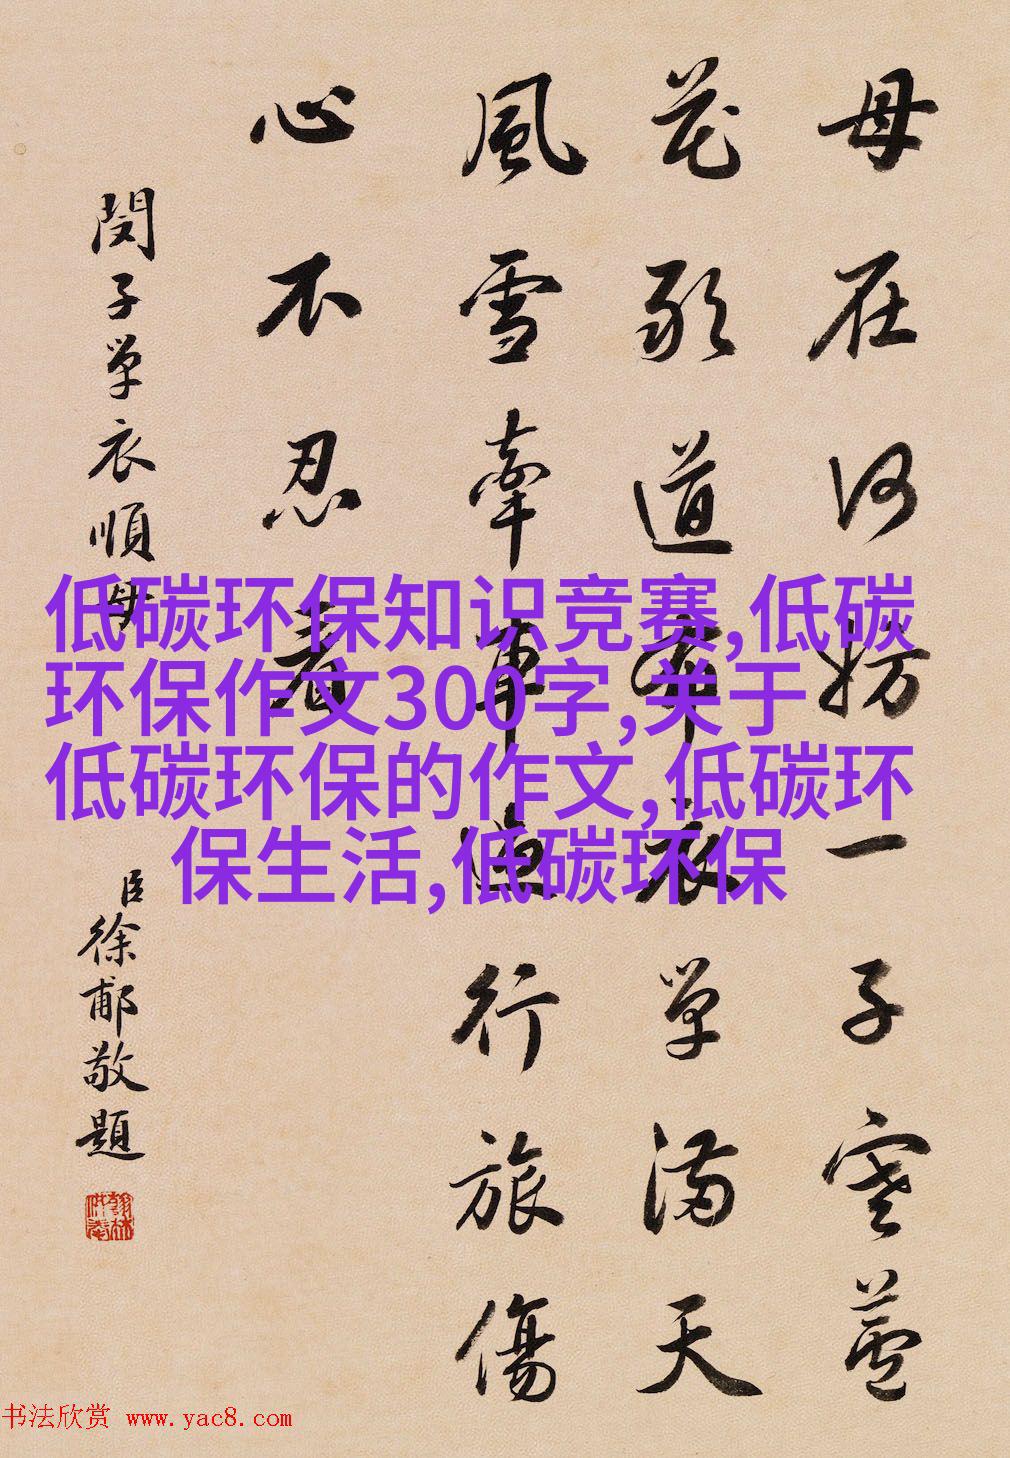 母在何妨一子寒蘆
花敢道布衣單滿天
風雪牽車行旅傷
心不忍看
閔子單衣順母
臣徐郙敬題
翰林供奉
低碳环保知识竞赛,低碳
环保作文300字,关于
低碳环保的作文,低碳环
保生活,低碳环保
书法欣赏 www.yac8.com